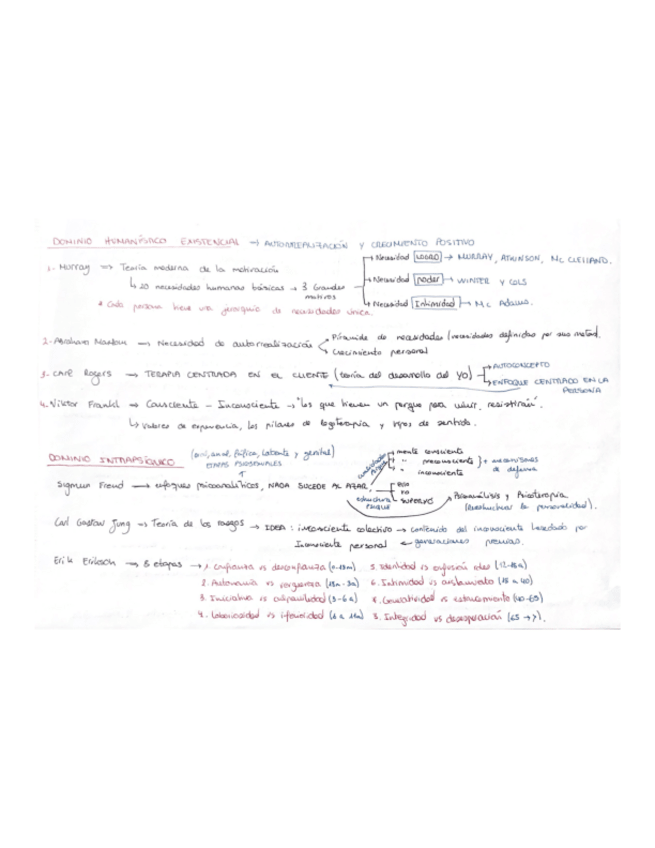 DOMINIO HUMANÍSTICO EXISTENCIAL → AUTORREALIZACIÓN Y CRECIMIENTO POSITIVO
→ Necesidad LOGRO → MURRAY, ATKINSON, Mc CLELLAND.
1. Murray → Teoría moderna de la motivación
→ Necesidad poder → WINTER y COLS
↳ 20 necesidades humanas básicas → 3 Grandes motivos
→ Necesidad Intimidad → Mc Adams.
* Cada persona tiene una jerarquía de necesidades única.
2. Abraham Maslow → Necesidad de autorrealización
Pirámide de necesidades (necesidades definidas por sus metas).
Crecimiento personal
3. CARL Rogers → TERAPIA CENTRADA EN EL CLIENTE (teoría del desarrollo del YO)
→ AUTOCONCEPTO
→ ENFOQUE CENTRADO EN LA PERSONA
4. Viktor Frankl → Consciente - Inconsciente → "los que tienen un porque para vivir, resistirán".
↳ Valores de experiencia, los pilares de logoterapia y tipos de sentido.
DOMINIO INTRAPSÍQUICO
(oral, anal, fálica, latente y genital)
ETAPAS PSICOSEXUALES
mente consciente
" preconsciente
" inconsciente
} + mecanismos de defensa
Sigmun Freud → enfoques psicoanalíticos, NADA SUCEDE AL AZAR,
estructura
ello
yo
superyo
Psicoanálisis y Psicoterapia
(reestructurar la personalidad).
Carl Gustav Jung → Teoría de los rasgos → IDEA: inconsciente colectivo → contenido del inconsciente heredado por
Inconsciente personal ← generaciones previas.
Erik Erikson → 8 etapas → 1. Confianza vs desconfianza (0-18m) 5. Identidad vs confusión roles (12-18a)
2. Autonomía vs vergüenza (18m-3a) 6. Intimidad vs aislamiento (18 a 40)
3. Iniciativa vs culpabilidad (3-6a) Generatividad vs estancamiento (40-65)
4. Laboriosidad vs inferioridad Integridad vs desesperación (65 → ).